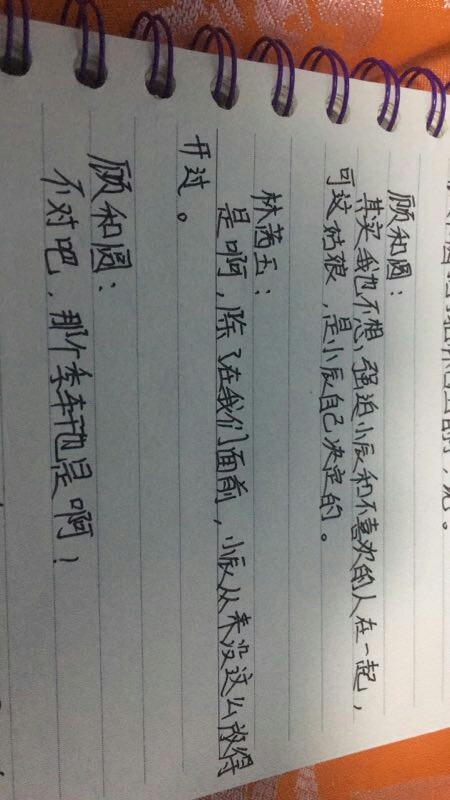 顾和圆:
其实我也不想强迫小辰和不喜欢的人在一起,
可这姑娘,是小辰自己决定的。
林茵玉:
是啊,除了在我们面前,小辰从来没这么放得
开过。
顾和圆:
不对吧,那个李车也是啊!